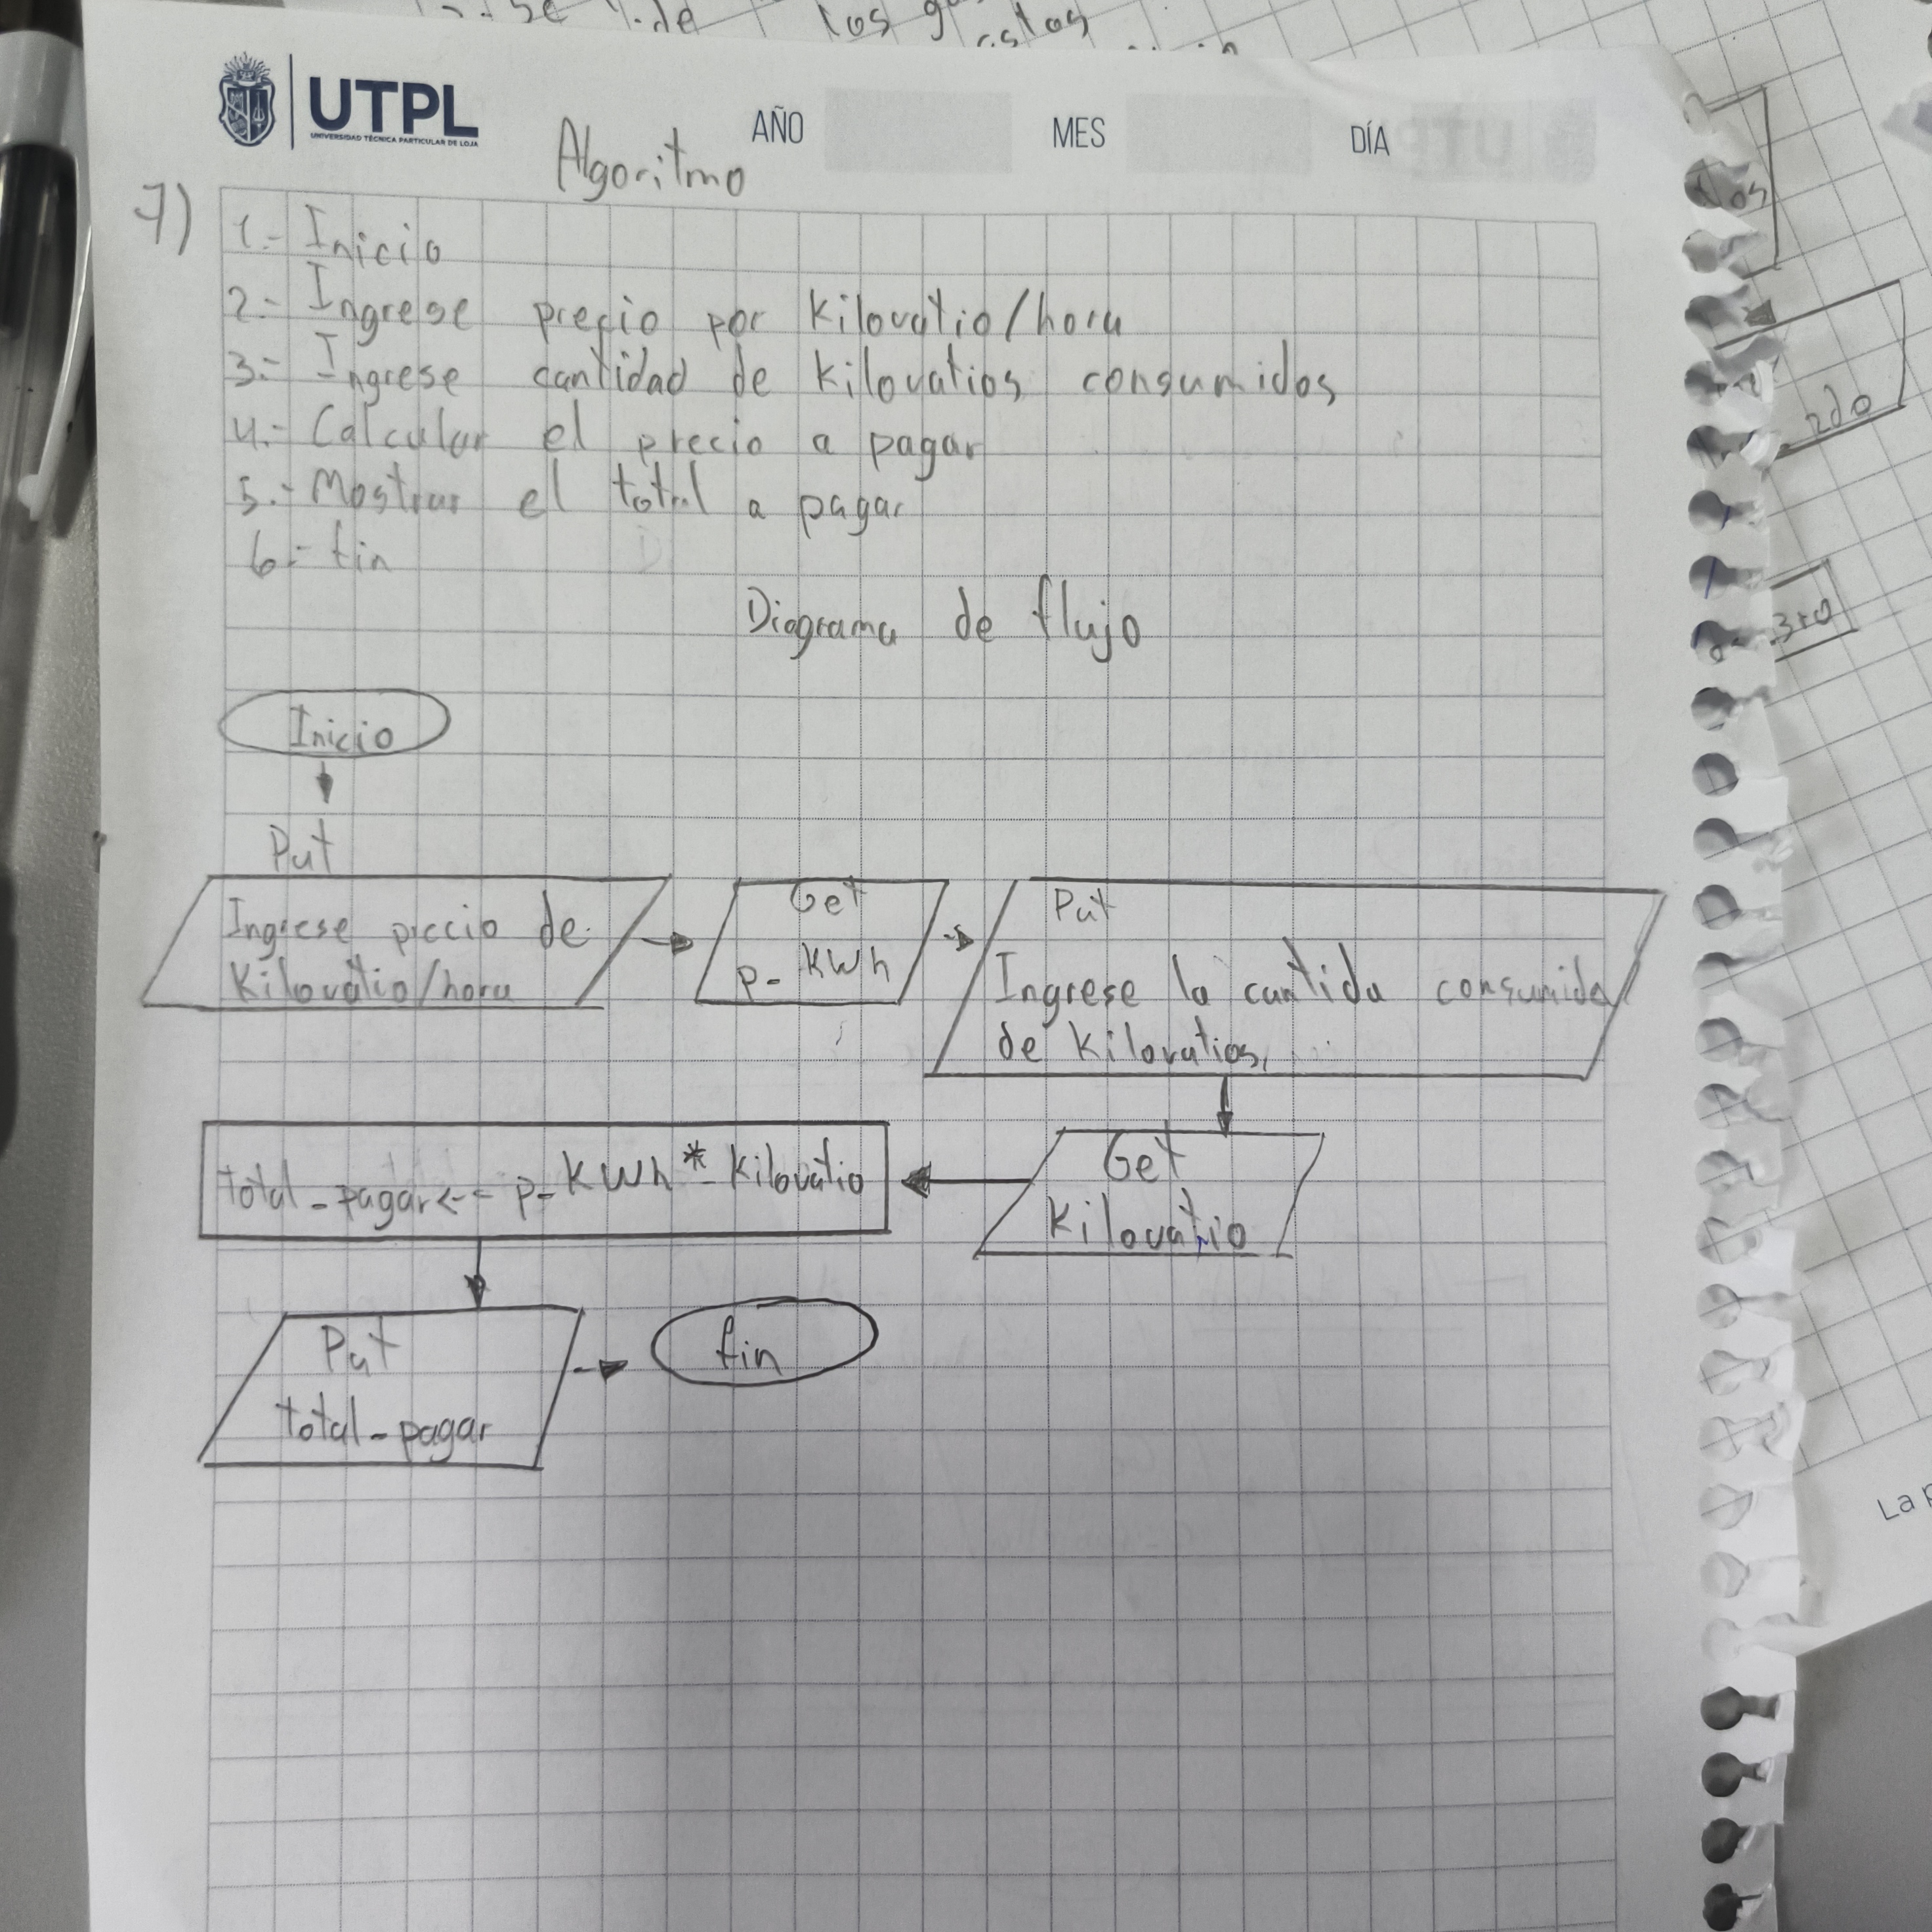 los
UTPL
UNIVERSIDAD TÉCNICA PARTICULAR DE LOJA
AÑO
MES
DÍA
Algoritmo
7)
1.- Inicio
2.- Ingrese precio por Kilovatio/hora
3.- Ingrese cantidad de Kilovatios consumidos
4.- Calcular el precio a pagar
5.- Mostrar el total a pagar
6.- fin
Diagrama de flujo
Inicio
Put
Ingrese precio de
Kilovatio/hora
Get
p_KWh
Put
Ingrese la cantida consumida
de Kilovatios
Get
Kilovatio
total_pagar<-- p_KWh * Kilovatio
Put
total_pagar
fin
2do
3ro
La p